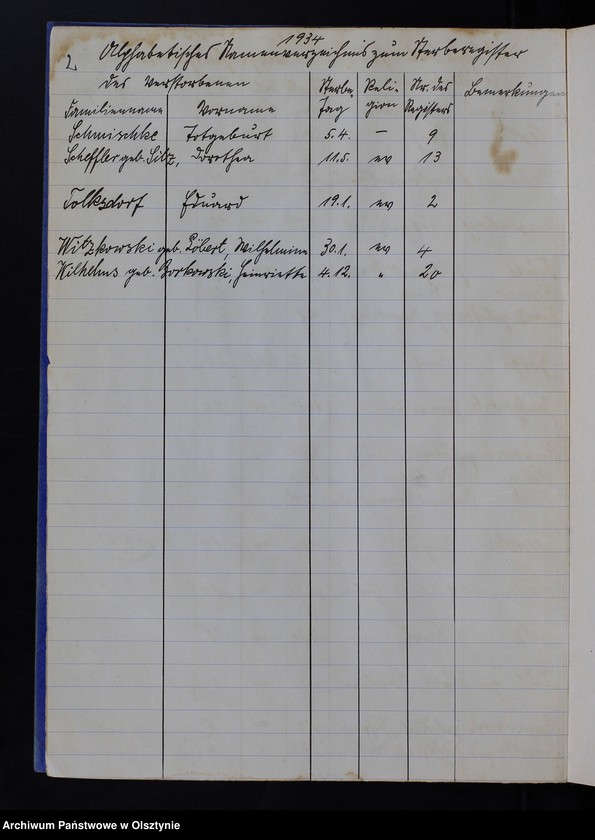 1934
2 Alphabetisches Namenverzeichnis zum Sterberegister
des Verstorbenen Sterbe- Reli- Nr. des Bemerkungen
Familienname Vorname tag gion Registers
Schmischke Totgeburt 5.4. — 9
Scheffler geb. Silz, Dorothea 11.5. ev 13
Tolksdorf Eduard 19.1. ev 2
Witzkowski geb. Löbert, Wilhelmine 30.1. ev 4
Wilhelms geb. Borkowski, Heinriette 4.12. " 20
Archiwum Państwowe w Olsztynie